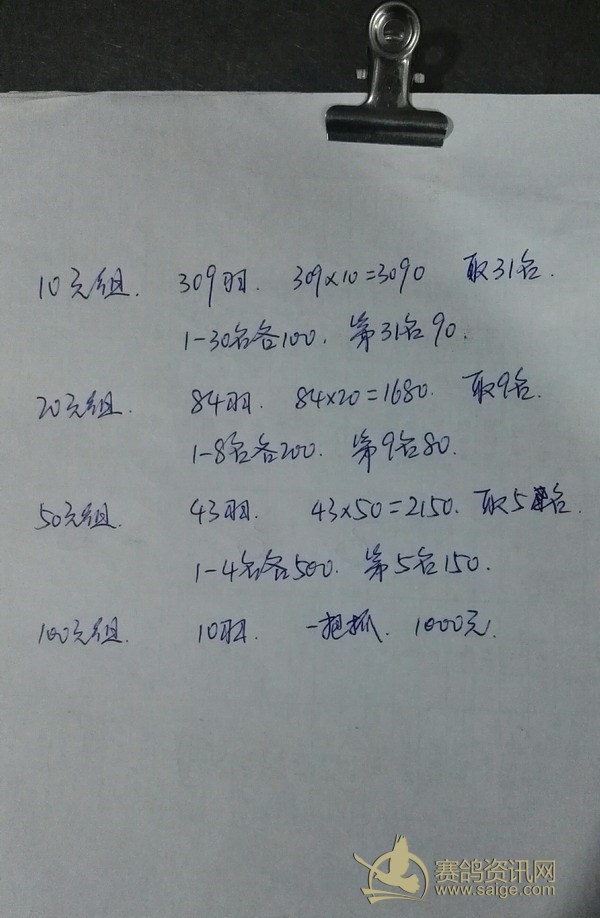 10元组. 309羽. 309×10=3090 取31名.
1-30名各100. 第31名90.
20元组. 84羽. 84×20=1680. 取9名.
1-8名各200. 第9名80.
50元组. 43羽. 43×50=2150. 取5名.
1-4名各500. 第5名150.
100元组. 10羽. 一把抓. 1000元.
赛鸽资讯网
www.saige.com